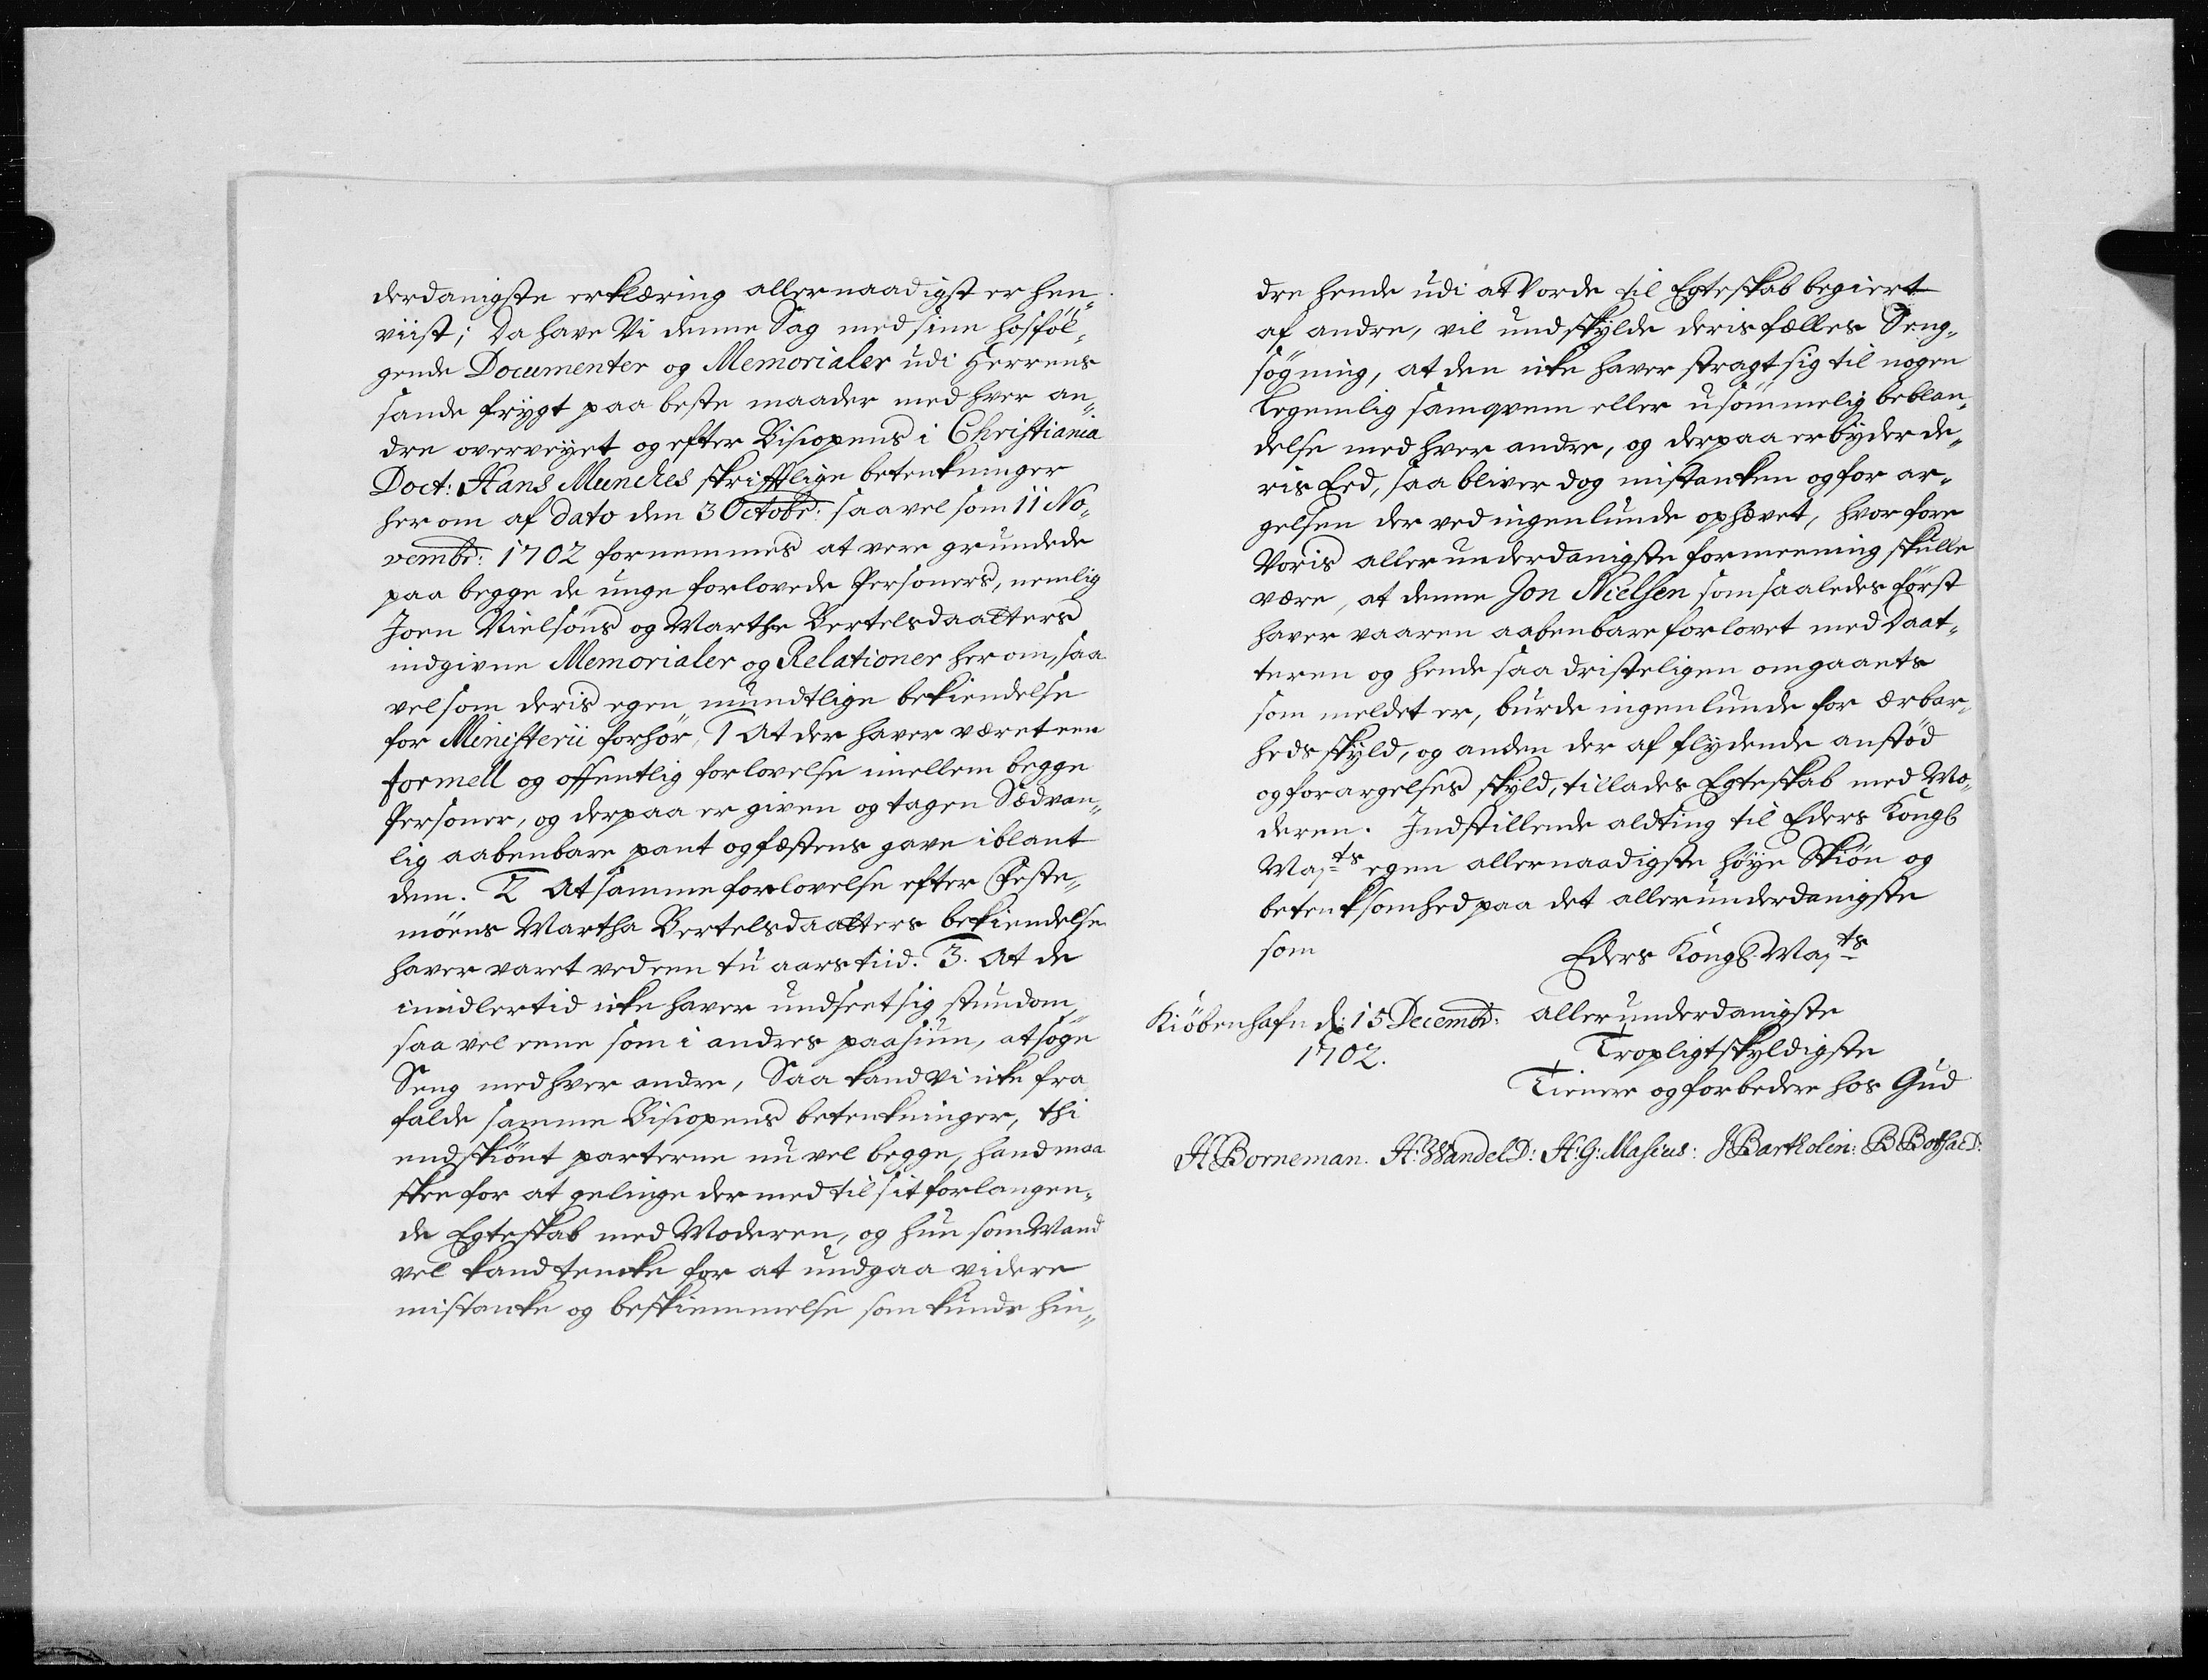 derdanigste erklæring allernaadigst er hen„
viist; Da have Vi denne Sag med sine hosföl„
gende Documenter og Memorialer udi Herrens
sande frÿgt paa beste maader med hver an„
dre overveÿet og efter Biscopens i Christiania
Doct: Hans Munches skrifftlige betenkninger
her om af dato den 3 Octobr: saa vel som 11 No„
vembr: 1702 fornemmes at vere grundede
paa begge de unge forlovede Personers, nemlig
Joen Nielsöns og Marthe Bertelsdaatters
indgivne Memorialer og Relationer her om, saa
vel som deris egen mundtlige bekiendelse
for Ministerii forhör, 1 At der haver været een
formell og offentlig forlovelse imellem begge
Personer, og derpaa er given og tagen Sædvan„
lig aabenbare pant og fæstens gave iblant
dem. 2 At samme forlovelse efter Feste„
möens Martha Bertelsdaatters bekiendelse
haver varet ved een tu aars tiid. 3. At de
imidlertid icke haver undseet sig stundom,
saa vel eene som i andres paasiun, at söge
Seng med hver andre, Saa kand Vi icke fra
falde samme Biscopens betenkninger, thi
endskiönt parterne nu vel begge, hand maa
skee for at gelinge der med til sit forlangen„
de Egteskab med Moderen, og hun som Mand
vel kand tencke for at undgaa videre
mistanke og beskiemmelse som kunde hin„
dre hende udi at Vorde til Egteskab begiert
af andre, vil undskÿlde deris fælles Seng„
sögning, at den icke haver stragt sig til nogen
Legemlig samqvem eller usömmelig beblan„
delse med hver andre, og derpaa erbÿder de„
ris Eed, saa bliver dog mistanken og for ar„
gelsen der ved ingenlunde ophævet, hvor fore
Voris allerunderdanigste formeening skulle
være, at denne Jon Nielsen som saaledes först
haver vaaren aabenbare forlovet med Daat„
teren og hende saa dristeligen omgaaets
som meldet er, burde ingenlunde for ærbar„
heds skÿld, og anden der af flÿdende anstöd
og forargelses skÿld, tillades Egteskab med Mo„
deren. Indstillende alding til Eders Kongl
Majts egen allernaadigste höÿe Skiön og
betenksomhed paa det allerunderdanigste
som
Eders Kongl. Majts
Kiöbenhafn d: 15 Decembr: allerunderdanigste
1702. Tropligtskÿldigste
Tienere og forbedere hos Gud
H Borneman. H: Wandel D: H: G: Masius: J Bartholin: B Botsac D: